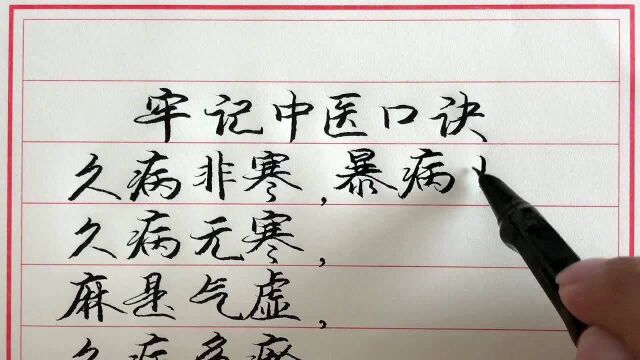 牢记中医口诀
久病非寒,暴病
久病无寒,
麻是气虚,
久病多瘀